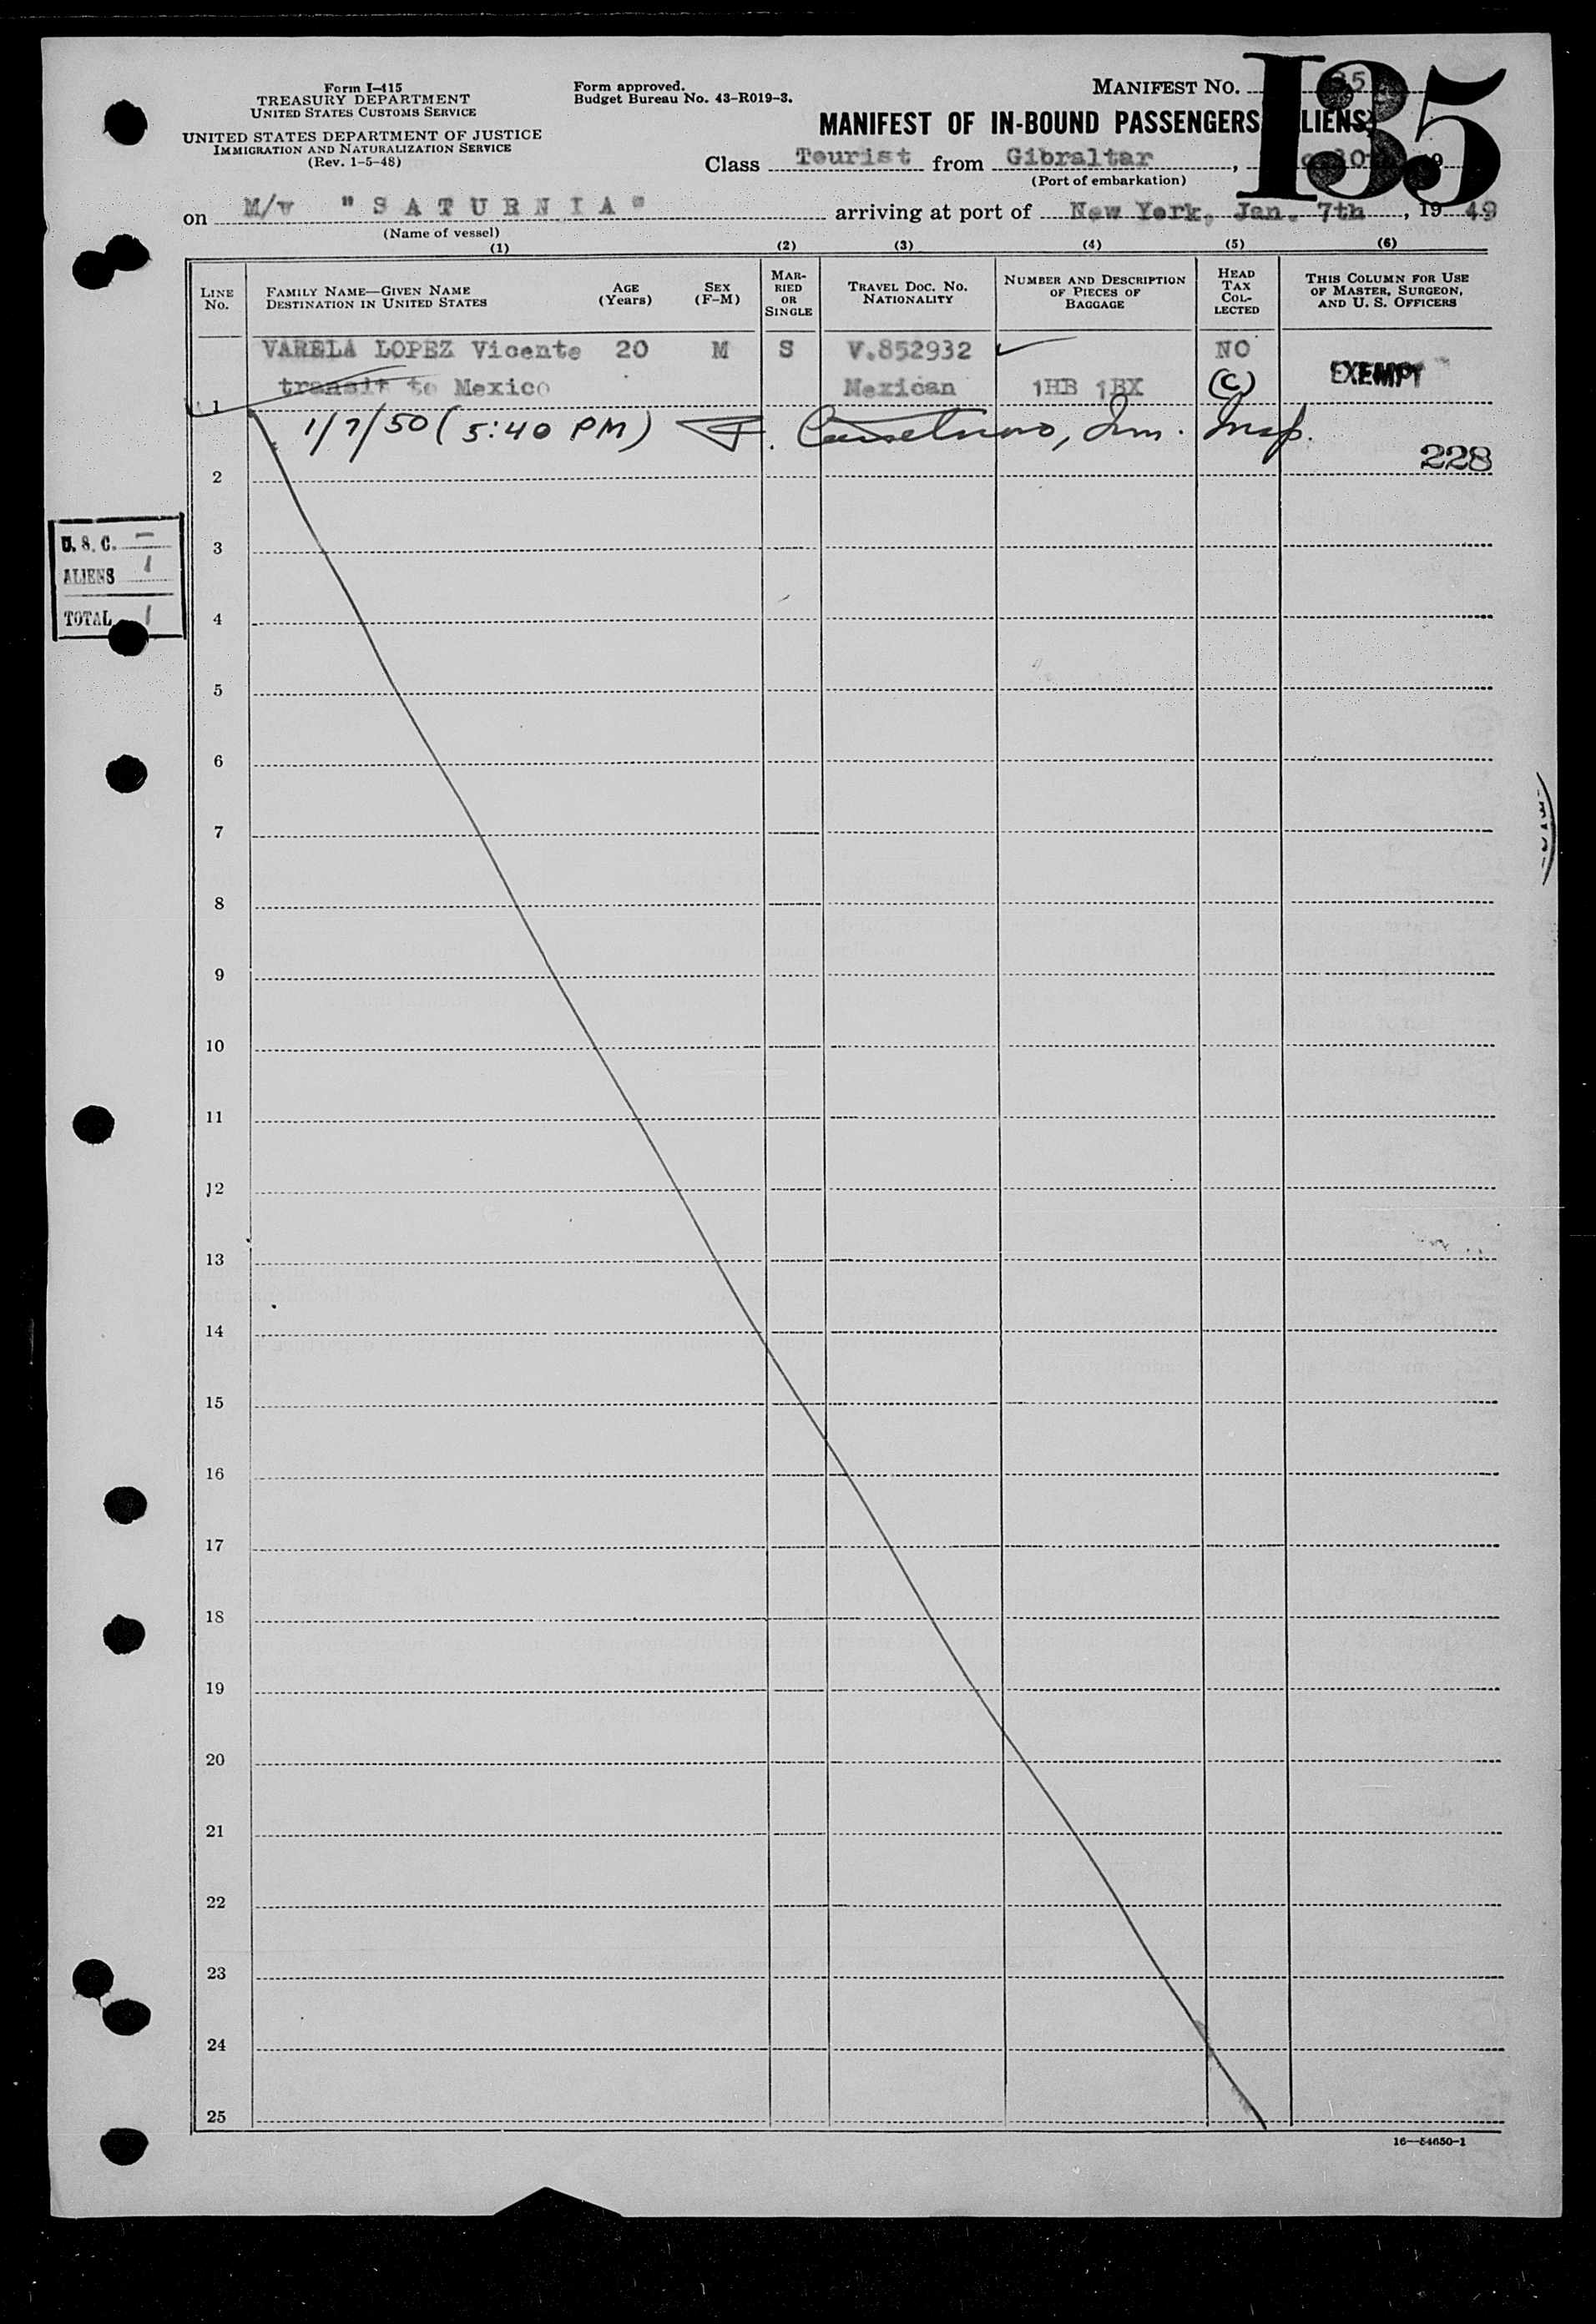 Form I-415
TREASURY DEPARTMENT
UNITED STATES CUSTOMS SERVICE
UNITED STATES DEPARTMENT OF JUSTICE
IMMIGRATION AND NATURALIZATION SERVICE
(Rev. 1-5-48)
Form approved.
Budget Bureau No. 43-R019-3.
MANIFEST NO.
135
MANIFEST OF IN-BOUND PASSENGERS
Class Tourist from Gibraltar,
(Port of embarkation)
on M/v "SATURNIA" arriving at port of New York, Jan. 7th, 1949
(Name of vessel)
(1) (2) (3) (4) (5) (6)
LINE NO.
FAMILY NAME—GIVEN NAME
DESTINATION IN UNITED STATES
AGE
(Years)
SEX
(F-M)
MAR-
RIED
OR
SINGLE
TRAVEL DOC. NO.
NATIONALITY
NUMBER AND DESCRIPTION
OF PIECES OF
BAGGAGE
HEAD
TAX
COL-
LECTED
THIS COLUMN FOR USE
OF MASTER, SURGEON,
AND U. S. OFFICERS
VARELA LOPEZ Vicente 20 M S V.852932 NO
transit to Mexico Mexican 1HB 1BX (C) EXEMPT
1
1/7/50 (5:40 PM) Imm. Insp.
228
2
U. S. C. —
ALIENS 1
TOTAL 1
3
4
5
6
7
8
9
10
11
12
13
14
15
16
17
18
19
20
21
22
23
24
25
16—54650-1